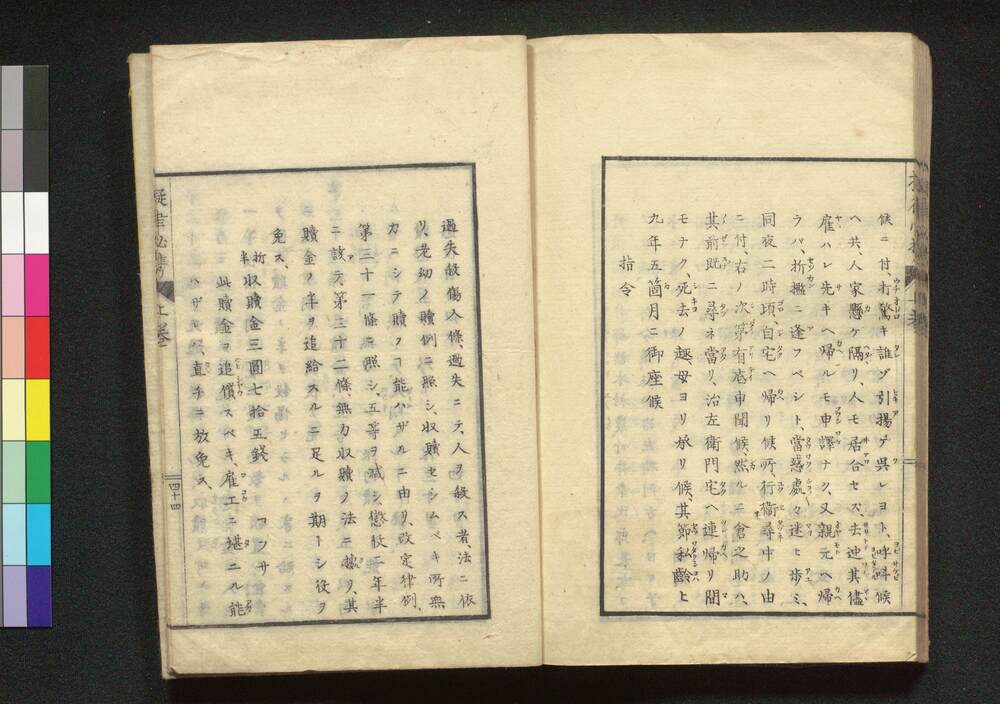 候ニ付、打驚キ誰ゾ引揚ゲ呉レヨト、呼叫候
ヘ共、人家懸ケ隔リ、人モ居合セズ、去迚其儘
雇ハレ先キヘ帰ルモ申譯ナシ、又親元ヘ帰
ラバ、折檻ニ逢フベシト、當惑處々迷ヒ歩ミ、
同夜二時頃、自宅ヘ帰リ候所、行衞尋中ノ由
ニ付、右ノ次第有志申聞候、然ルニ倉之助ハ、
其前既ニ尋ネ當リ、治左衛門宅ヘ連帰リ間
モナク、死去ノ趣、母ヨリ承リ候、其節私齢ヒ
九年五箇月ニ御座候
指令
過失殺傷人條、過失ニテ、人ヲ殺ス者法ニ依
リ、老幼ノ贖例ニ照シ、収贖セシムベキ所、無
力ニシテ贖フコ能ハザルニ由リ、改定律例、
第三十一條ニ照シ、五等ヲ減シ、懲役一年半
ニ該テ、第三十二條、無力収贖ノ法ニ據リ、其
贖金ノ半ヲ追給スルニ足ルヲ期トシ役ヲ
免ス、
折半収贖金三圓七拾五錢 フフサ
此贖金ヲ追償スベキ、雇工ニ堪ニル能
ハザレバ、直チニ放免ス
擬律必携 上巻
四十四